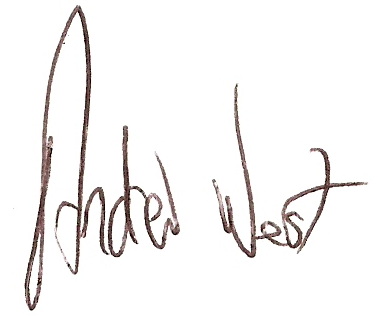 Andrew West